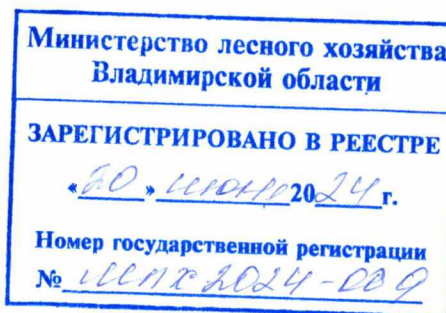 Министерство лесного хозяйства
Владимирской области
ЗАРЕГИСТРИРОВАНО В РЕЕСТРЕ
«20» июня 2024 г.
Номер государственной регистрации
№ МЛХ 2024-009